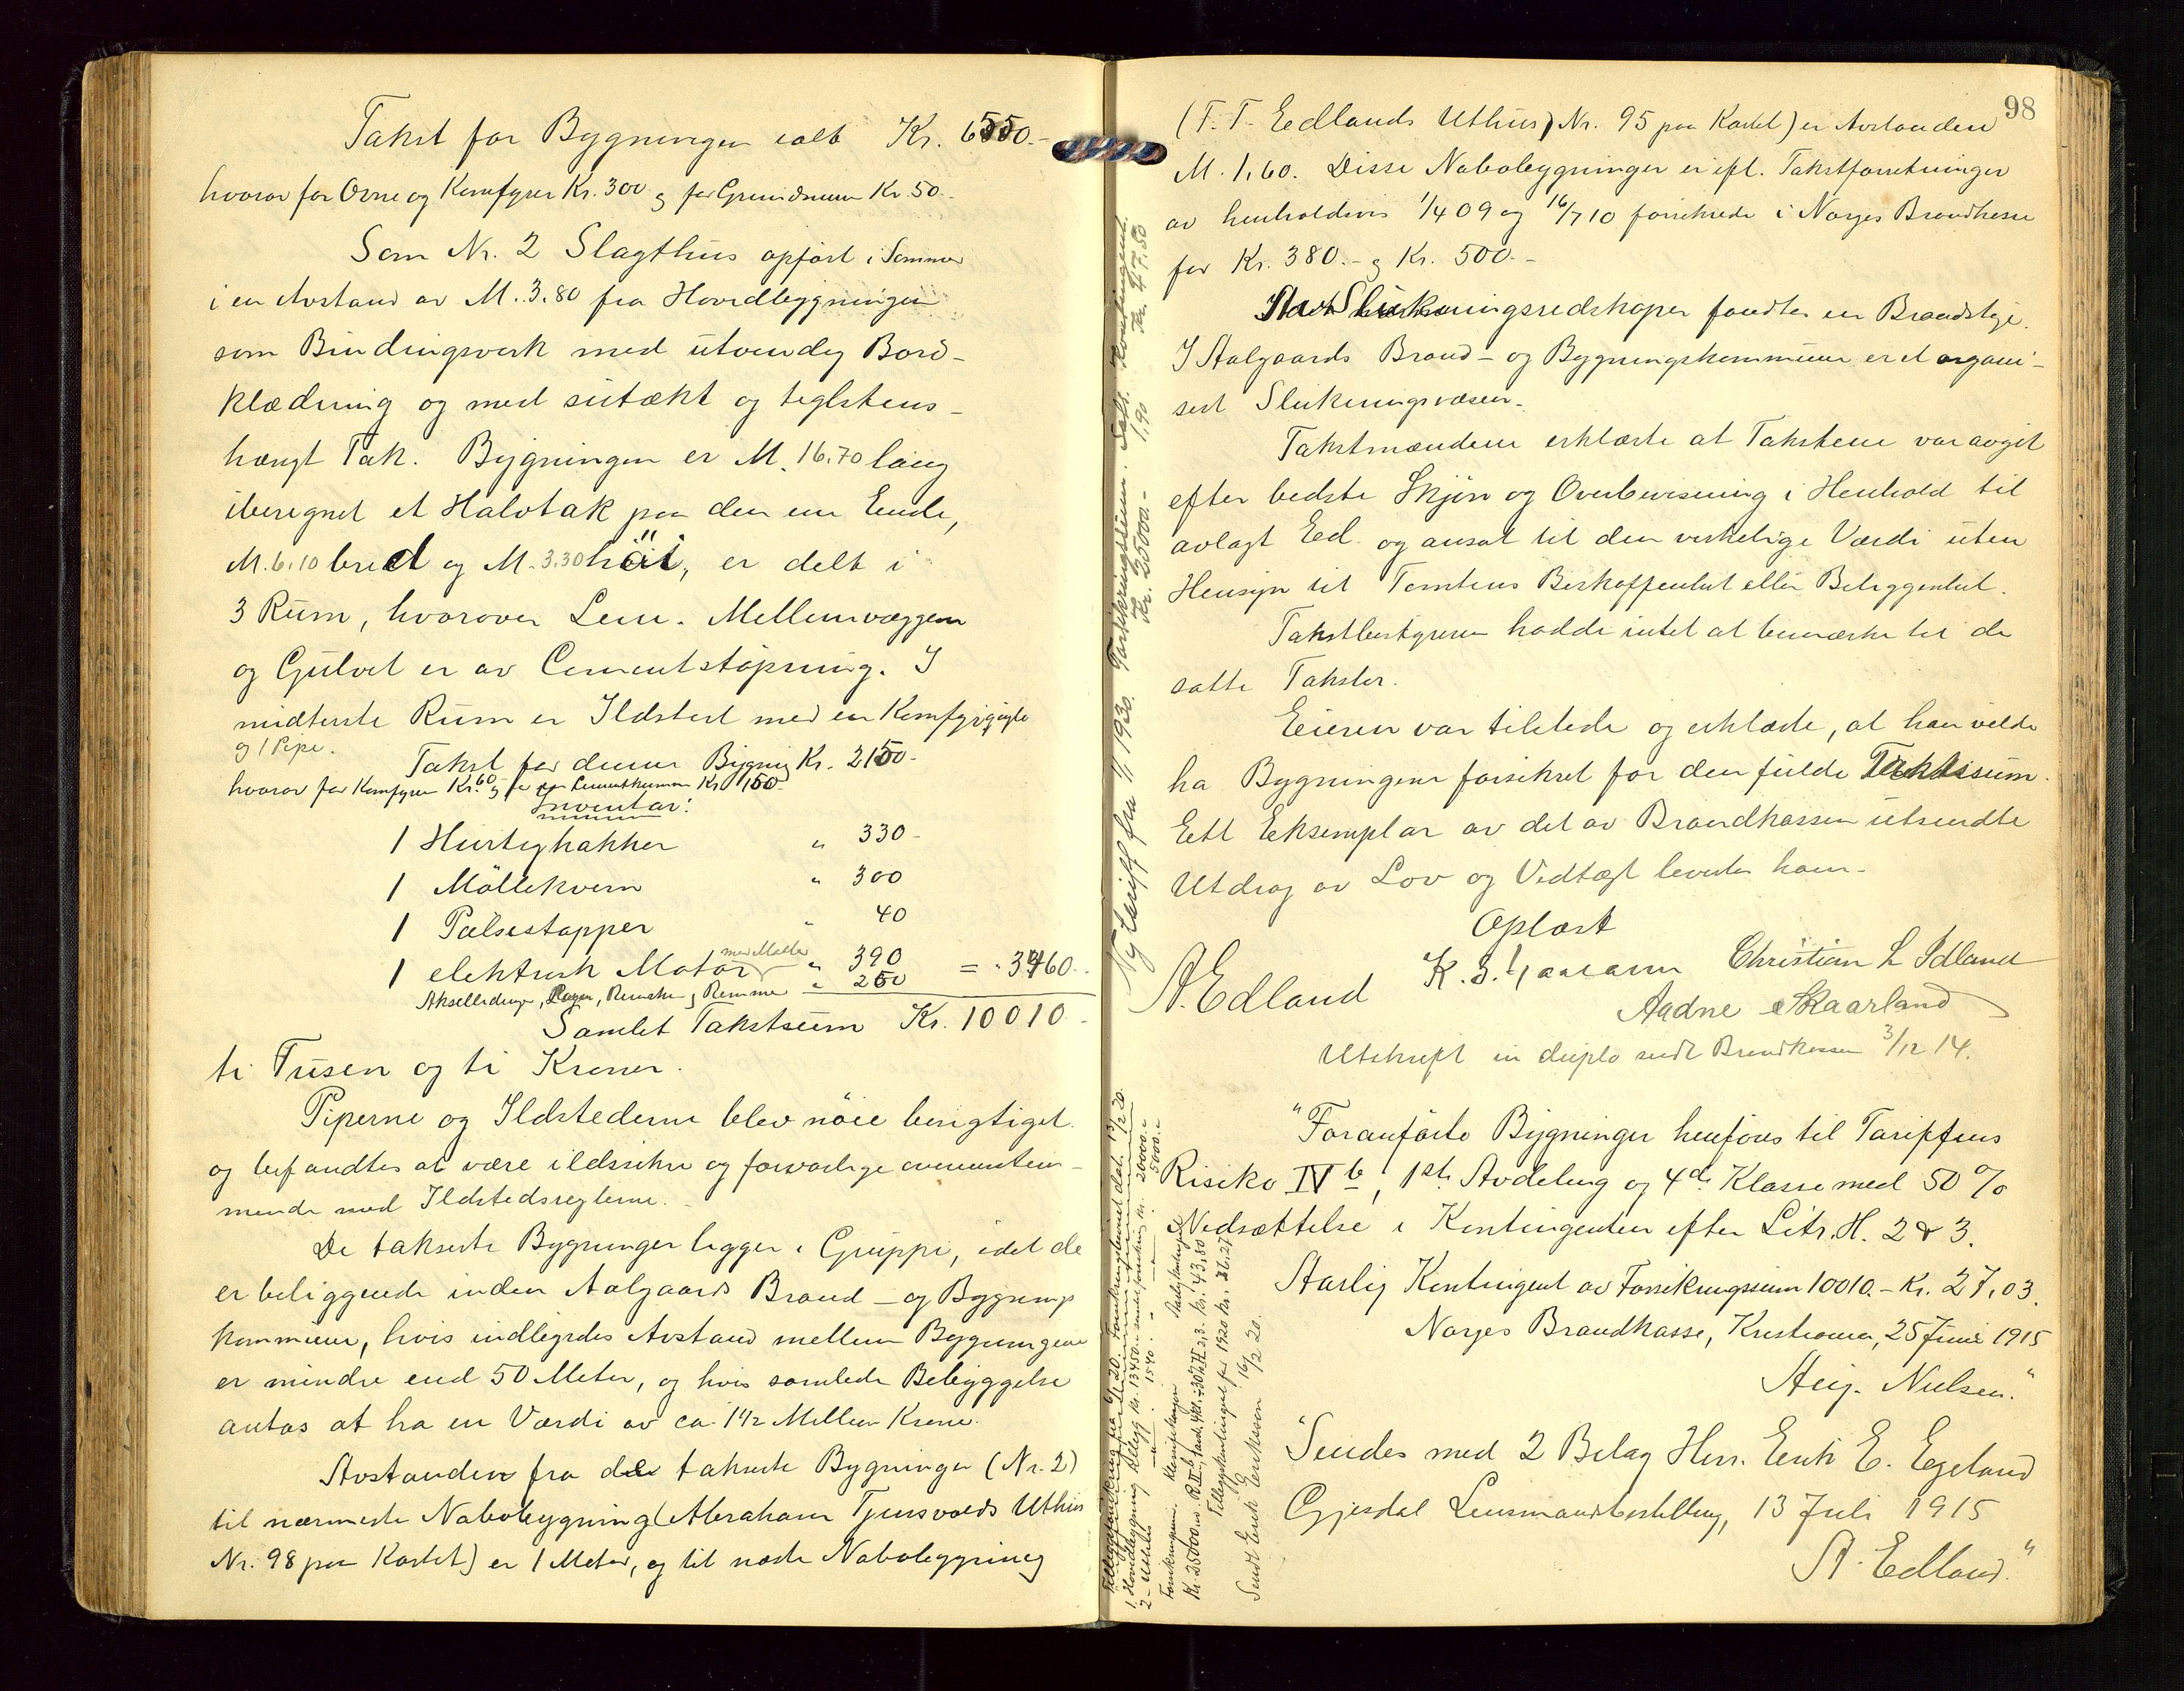 Takst for Bygningen ialt Kr. 6550.-
hvorav for Ovne og Komfyrer Kr. 300 og for Grundmur Kr. 50.-
Som Nr. 2 Slagthus opført i Sommer
i en Avstand av M. 3.80 fra Hovedbygningen
som Bindingsverk med utvendig Bord-
klædning og med sutækt og teglstens-
hængt Tak. Bygningen er M. 16.70 lang
iberegnet et Halvtak paa den ene Ende,
M. 6.10 bred og M. 3.30 høi, er delt i
3 Rum, hvorover Lem. Mellemvæggen
og Gulvet er av Cementstøpning. I
midterste Rum er Ildsted med en Komfyrgryte
og 1 Pipe.
Takst for denne Bygning Kr. 2150.-
hvorav for Komfyren Kr. 60.- og for Cementkummen Kr. 150.-
Inventar:
1 Hurtighakker " 330-
1 Møllekvern " 300
1 Pølsestapper " 40
1 elektrisk Motor med Maaler " 390
Akselledninger, Lager, Remskiver og Remmer " 250 = " 
Samlet Takstsum Kr. 10010.-
ti Tusen og ti Kroner.
Piperne og Ildstederne blev nøie besigtiget
og befandtes at være ildssikre og forsvarlige overensstem-
mende med Ildstedsreglerne.-
De takserte Bygninger ligger i Gruppe, idet de
er beliggende inden Aalgaards Brand- og Bygnings
kommune, hvis indbyrdes Avstand mellem Bygningene
er mindre end 50 Meter, og hvis samlede Bebyggelse
antas at ha en Værdi av ca. 1½ Million Kroner.
Avstanden fra de takserte Bygninger (Nr. 2)
til nærmeste Nabobygning (Abraham Tjensvolds Uthus
Nr. 98 paa Kartet) er 1 Meter, og til næste Nabobygning
98
(T. T. Edlands Uthus) Nr. 95 paa Kartet) er Avstanden
M. 1,60. Disse Nabobygninger er ifl. Takstforretninger
av henholdsvis 1/4 09 og 16/7 10 forsikrede i Norges Brandkasse
for Kr. 380.- og Kr. 500.-
Av Slukningsredskaper fandtes en Brandstige.
I Aalgaards Brand- og Bygningskommune er et organi-
sert Slukningsvæsen.
Takstmændene erklærte at Taksterne var avgit
efter bedste Skjøn og Overbevisning i Henhold til
avlagt Eed og ansat til den virkelige Værdi uten
Hensyn til Tomtens Beskaffenhet eller Beliggenhet.
Takstbestyreren hadde intet at bemærke til de
satte Takster.
Eieren var tilstede og erklærte, at han vilde
ha Bygningene forsikret for den fulde Takstsum.
Ett Eksemplar av det av Brandkassen utsendte
Utdrag av Lov og Vedtægt levertes ham.
Oplæst
A. Edland Christian L Idland
Aadne Skaarland
Utskrift in duplo sendt Brandkassen 3/12 14.
"Foranførte Bygninger henføres til Tariffens
Risiko IV b, 1ste Avdeling og 4de Klasse med 50 %
Nedsættelse i Kontingenten efter Litr. H. 2 & 3.
Aarlig Kontingent av Forsikringssum 10010.- Kr. 27,03.
Norges Brandkasse, Kristiania, 25 Juni 1915
Aug. Nielsen."
"Sendes med 2 Bilag Herr. Erik E. Egeland
Gjesdal Lensmandsbestilling, 13 Juli 1915
A. Edland."
Ny tariff fra 1/1 1930. Forsikringssum. Sats. Kontingent.
Kr. 25000.- 1,90 Kr. 47,50
1. Hovedbygning
Sendt Erik Eriksen 16/2 20.